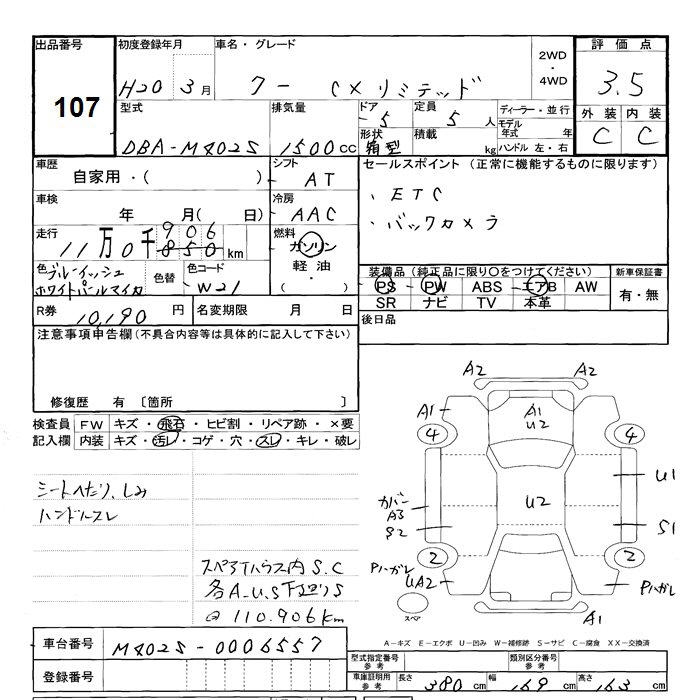 出品番号 初度登録年月 車名・グレード 評価点
107
H20 3月 クー CXリミテッド 2WD・4WD 3.5
型式 排気量 ドア 定員 ディーラー・並行 外装 内装
DBA-M402S 1500cc 5 5人 モデル年式 年 C C
形状 箱型 積載 kg ハンドル 左・右
車歴 自家用・( ) シフト AT セールスポイント(正常に機能するものに限ります)
車検 年 月( 日) 冷房 AAC ・ETC
・バックカメラ
走行 11万0千906 850km 燃料 ガソリン 軽油・( )
色 ブルーイッシュ ホワイトパールマイカ 色替 色コード W21
装備品(純正品に限り○をつけてください) 新車保証書
PS PW ABS エアB AW 有・無
SR ナビ TV 本革
R券 10,190円 名変期限 月 日 後日品
注意事項申告欄(不具合内容等は具体的に記入して下さい)
修復歴 有〔箇所 〕
検査員記入欄 FW キズ・飛石・ヒビ割・リペア跡・×要
内装 キズ・汚レ・コゲ・穴・スレ・キレ・破レ
シートへたり、しみ
ハンドルスレ
スペアTハウス内S.C
各A.U.S下廻りS
@110.906km
A2 A2
A1 A1 U2
4 4
カバーA3 U2 U1
S2 S1
2 2
PハガレUA2 Pハガレ
スペア A1
A-キズ E-エクボ U-凹み W-補修跡 S-サビ C-腐食 XX-交換済
車台番号 M402S-0006557
型式指定番号 参考 類別区分番号 参考
登録番号 車庫証明用 参考 長さ 380cm 幅 169cm 高さ 163cm